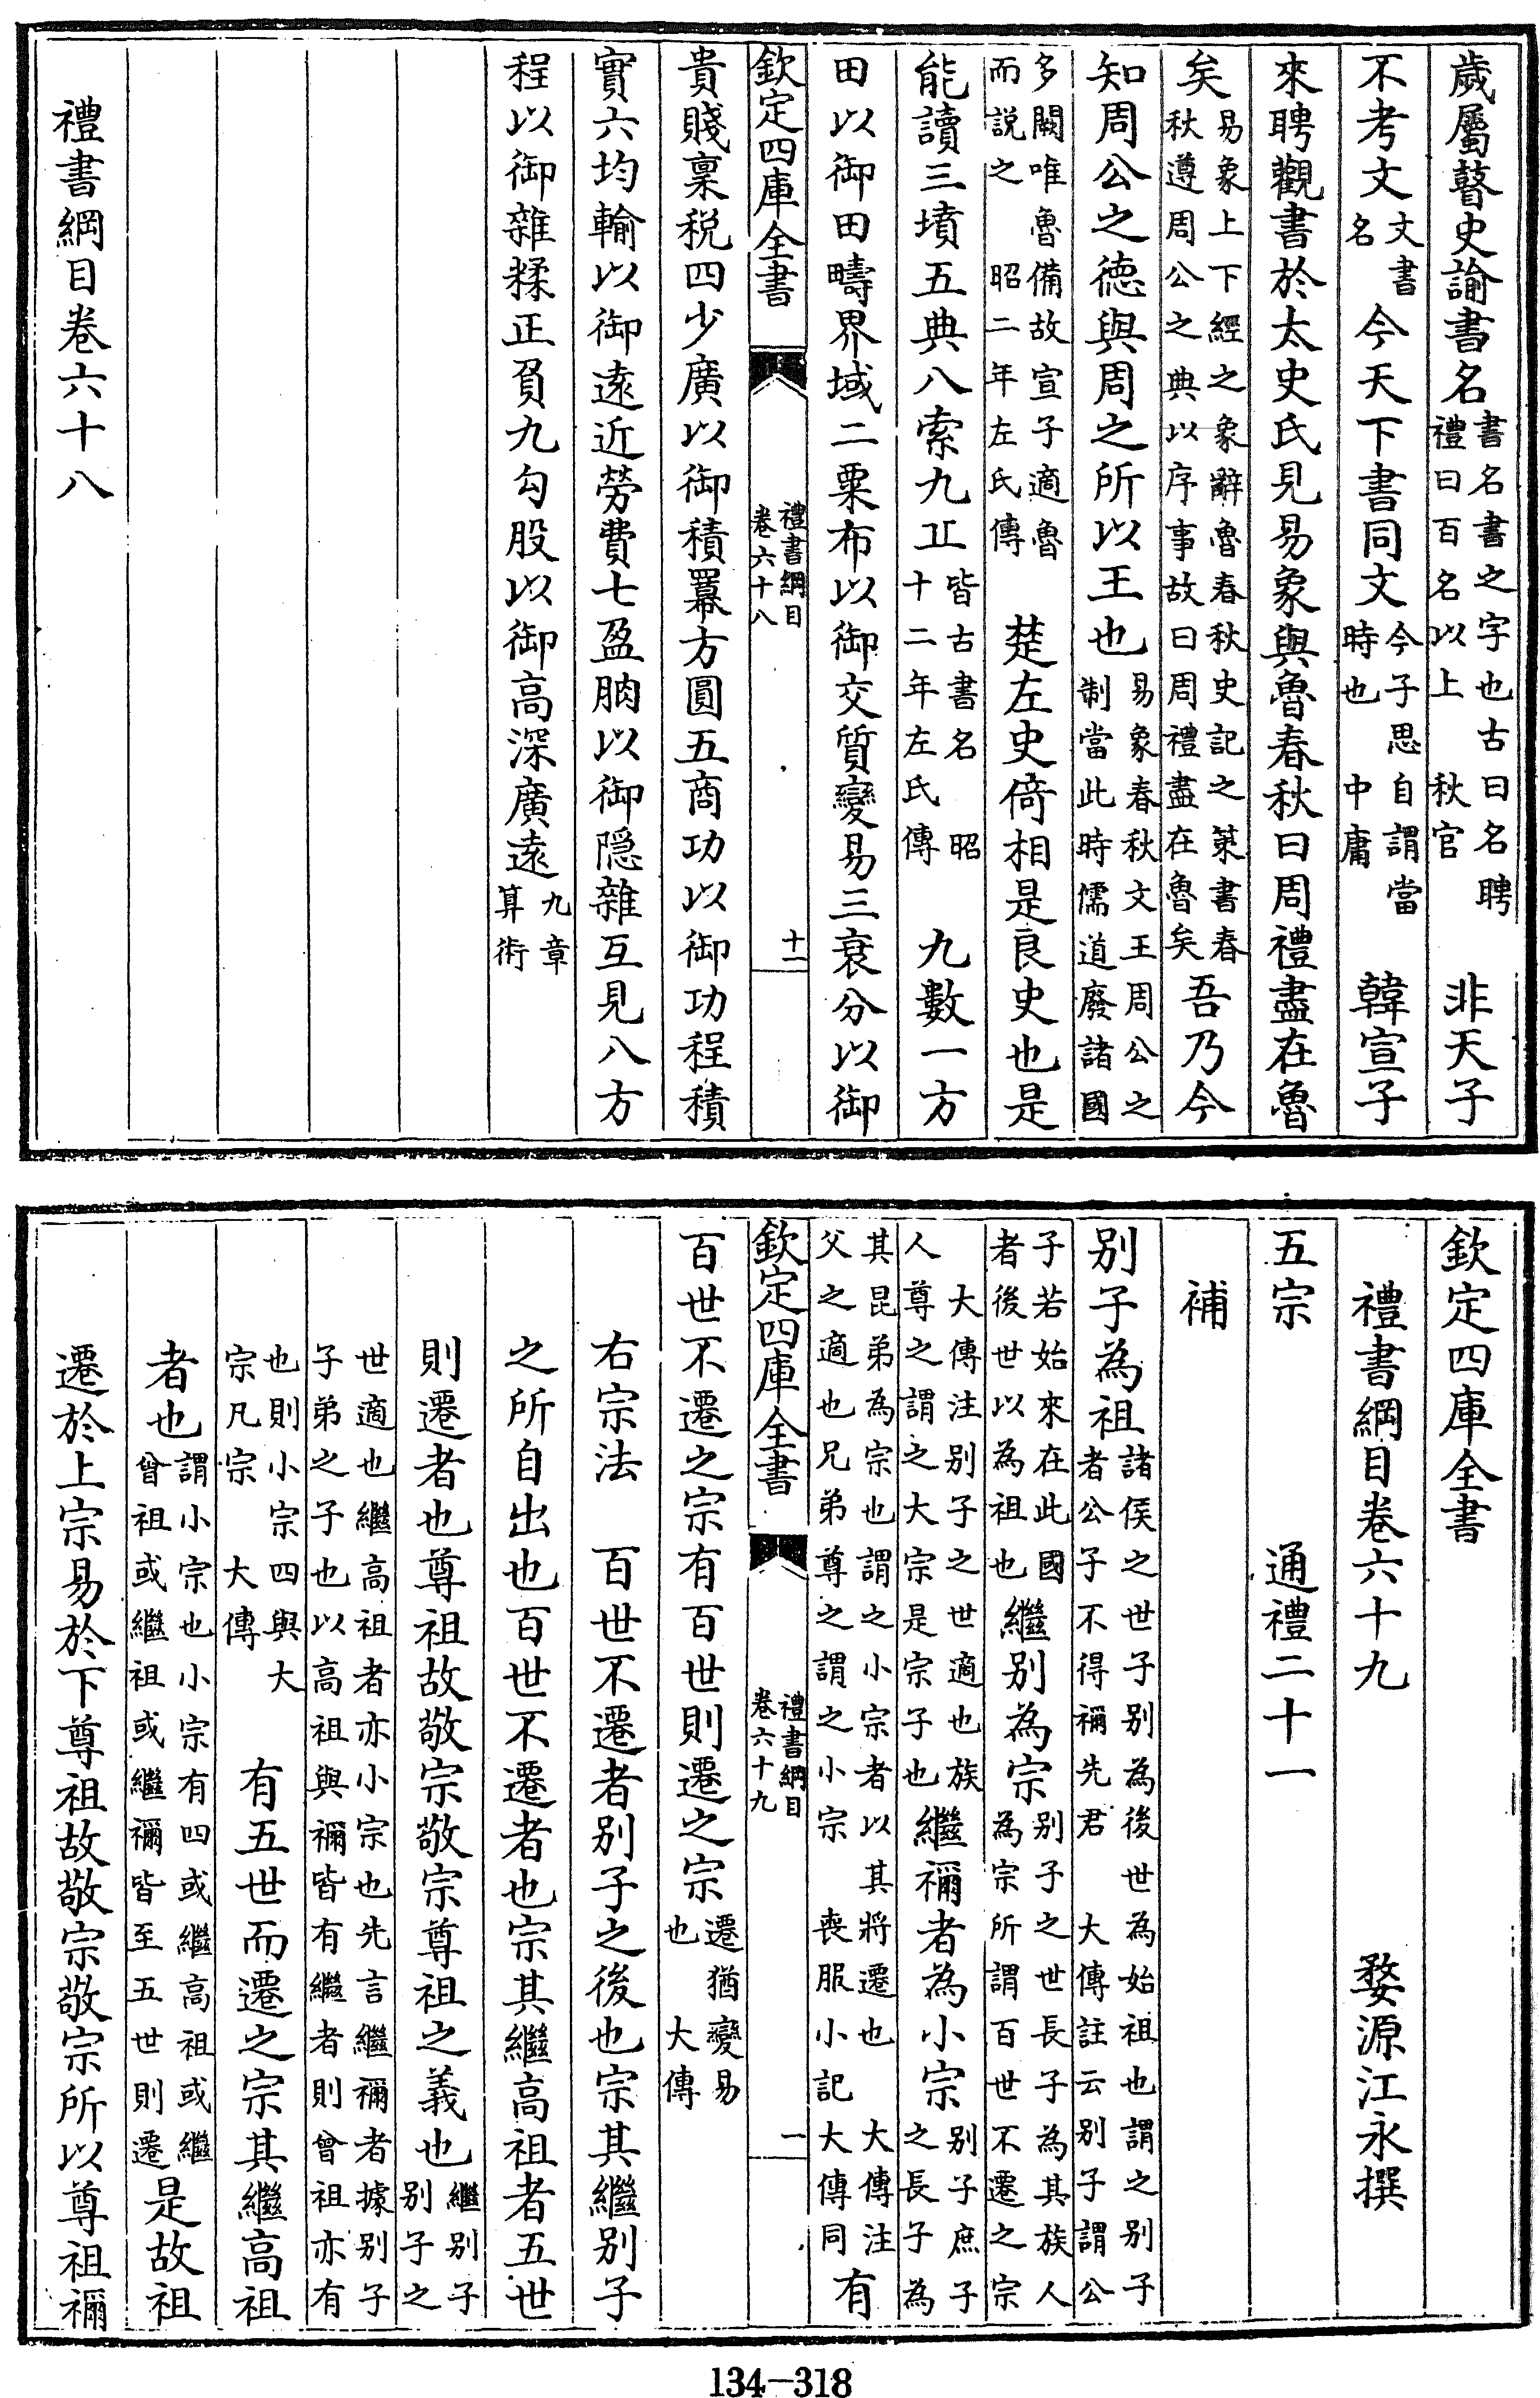 歲屬瞽史諭書名書名書之字也古曰名聘禮曰百名以上 秋官 非天子
不考文文書名今天下書同文今子思自謂當時也 中庸 韓宣子
來聘觀書於太史氏見易象與魯春秋曰周禮盡在魯
矣易象上下經之象辭魯春秋史記之策書春秋遵周公之典以序事故曰周禮盡在魯矣吾乃今
知周公之德與周之所以王也易象春秋文王周公之制當此時儒道廢諸國
多闕唯魯備故宣子適魯而説之 昭二年左氏傳 楚左史倚相是良史也是
能讀三墳五典八索九丠皆古書名 昭十二年左氏傳 九數一方
田以御田疇界域二粟布以御交質變易三衰分以御
欽定四庫全書 禮書綱目 卷六十八 十一
貴賤稟税四少廣以御積羃方圓五商功以御功程積
實六均輸以御遠近勞費七盈朒以御隱雜互見八方
程以御雜糅正負九勾股以御高深廣遠九章算術
禮書綱目卷六十八
欽定四庫全書
禮書綱目卷六十九 婺源江永撰
五宗 通禮二十一
補
别子為祖諸侯之世子别為後世為始祖也謂之别子者公子不得禰先君 大傳註云别子謂公
子若始來在此國者後世以為祖也繼别為宗别子之世長子為其族人為宗所謂百世不遷之宗
大傳注别子之世適也族人尊之謂之大宗是宗子也繼禰者為小宗别子庶子之長子為
其昆弟為宗也謂之小宗者以其將遷也 大傳注父之適也兄弟尊之謂之小宗 喪服小記 大傳同有
欽定四庫全書 禮書綱目 卷六十九 一
百世不遷之宗有百世則遷之宗遷猶變易也 大傳
右宗法 百世不遷者别子之後也宗其繼别子
之所自出也百世不遷者也宗其繼高祖者五世
則遷者也尊祖故敬宗敬宗尊祖之義也繼别子别子之
世適也繼高祖者亦小宗也先言繼禰者據别子子弟之子也以高祖與禰皆有繼者則曾祖亦有
也則小宗四與大宗凡宗 大傳 有五世而遷之宗其繼高祖
者也謂小宗也小宗有四或繼高祖或繼曾祖或繼祖或繼禰皆至五世則遷是故祖
遷於上宗易於下尊祖故敬宗敬宗所以尊祖禰
134-318